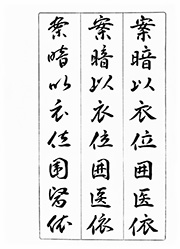 案暗以衣位囲医依
案暗以衣位囲医依
案暗以衣位囲医依